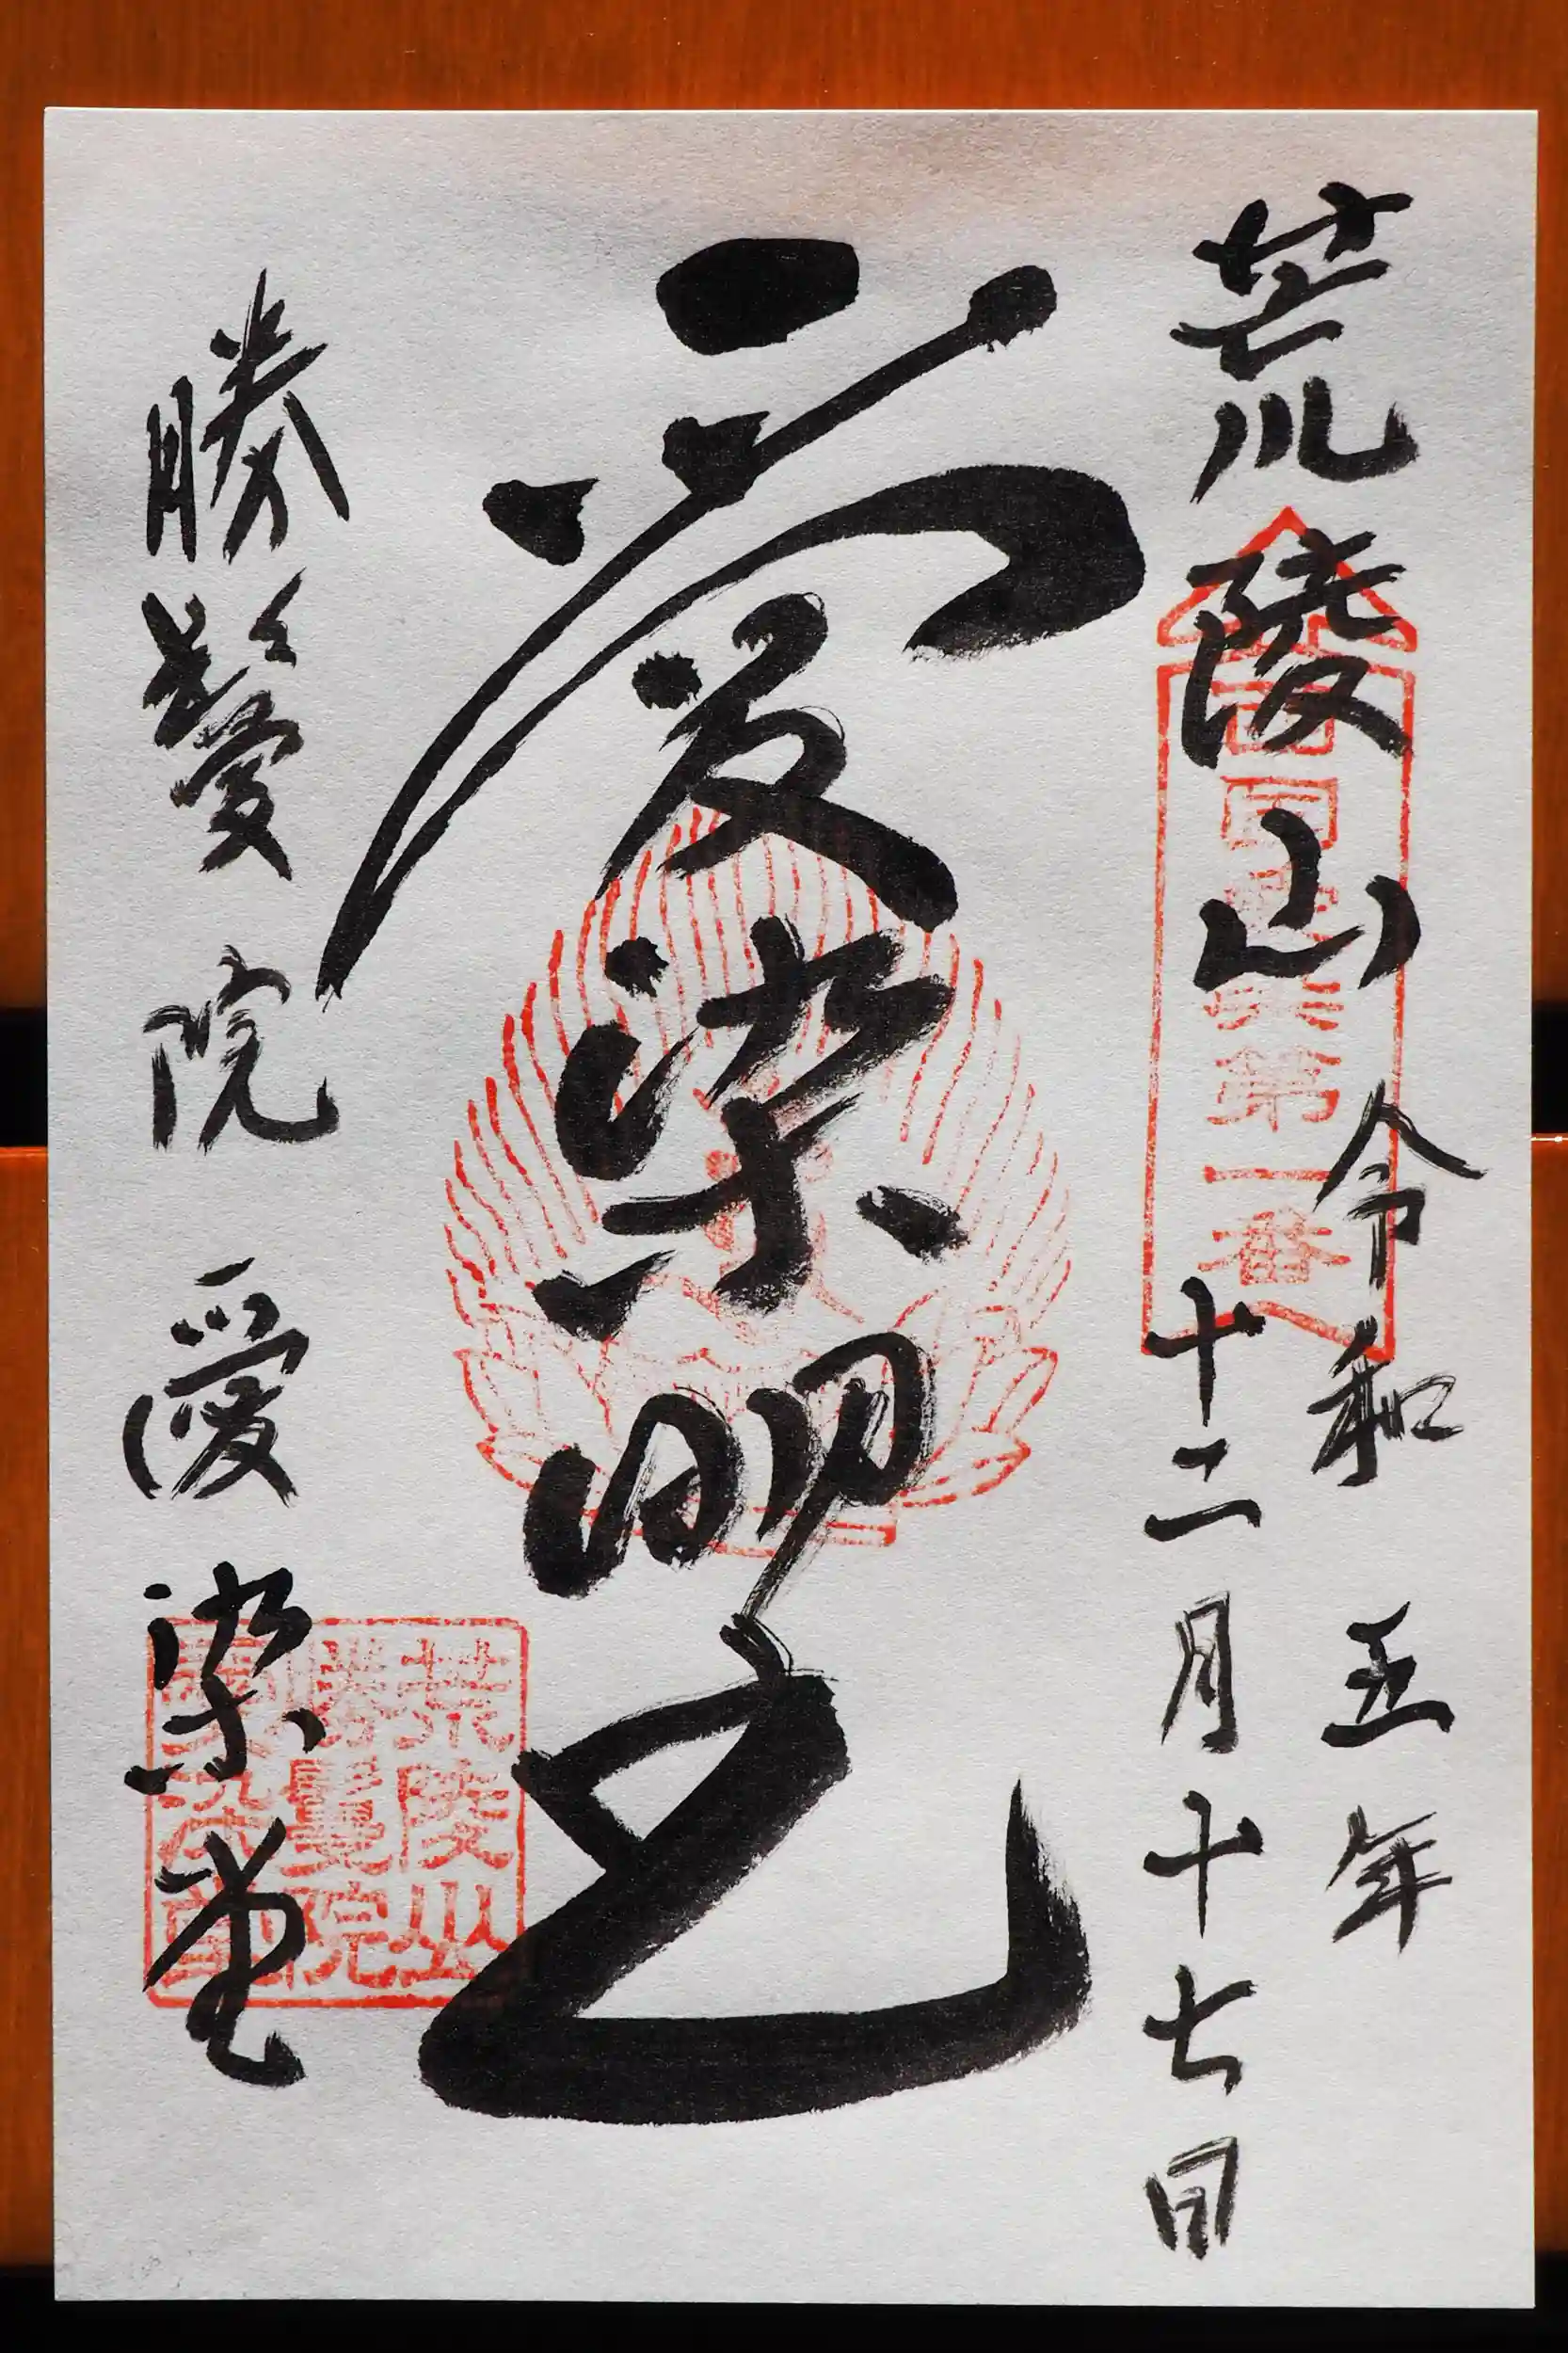 荒陵山
令和五年
十二月十七日
愛染明王
勝鬘院 愛染堂
西国愛染第一番
荒陵山
勝鬘院
愛染堂